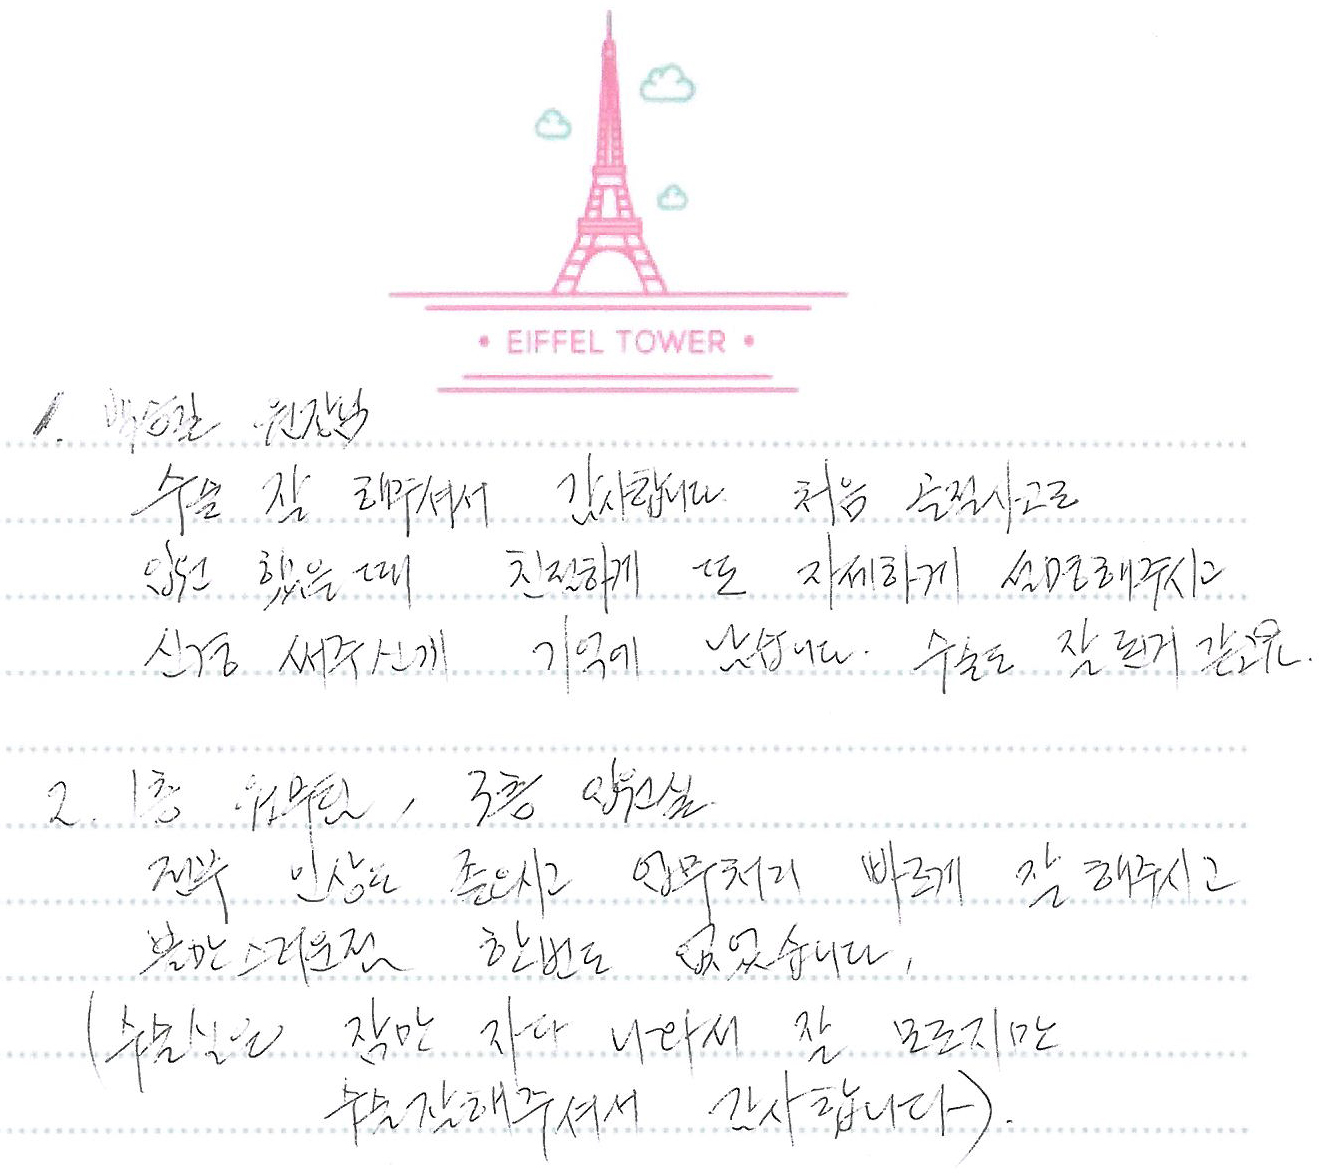 • EIFFEL TOWER •
1. 백승길 원장님
수술 잘 해주셔서 감사합니다. 처음 골절사고로
입원 했을때 친절하게 또 자세하게 설명해주시고
신경 써주신게 기억에 남습니다. 수술도 잘 된거 같고요.
2. 1층 원무팀, 3층 입원실.
전부 인상도 좋으시고 업무처리 빠르게 잘 해주시고
불만스러운점 한번도 없었습니다.
(수술실은 잠만 자다 나와서 잘 모르지만
수술잘해주셔서 감사합니다).